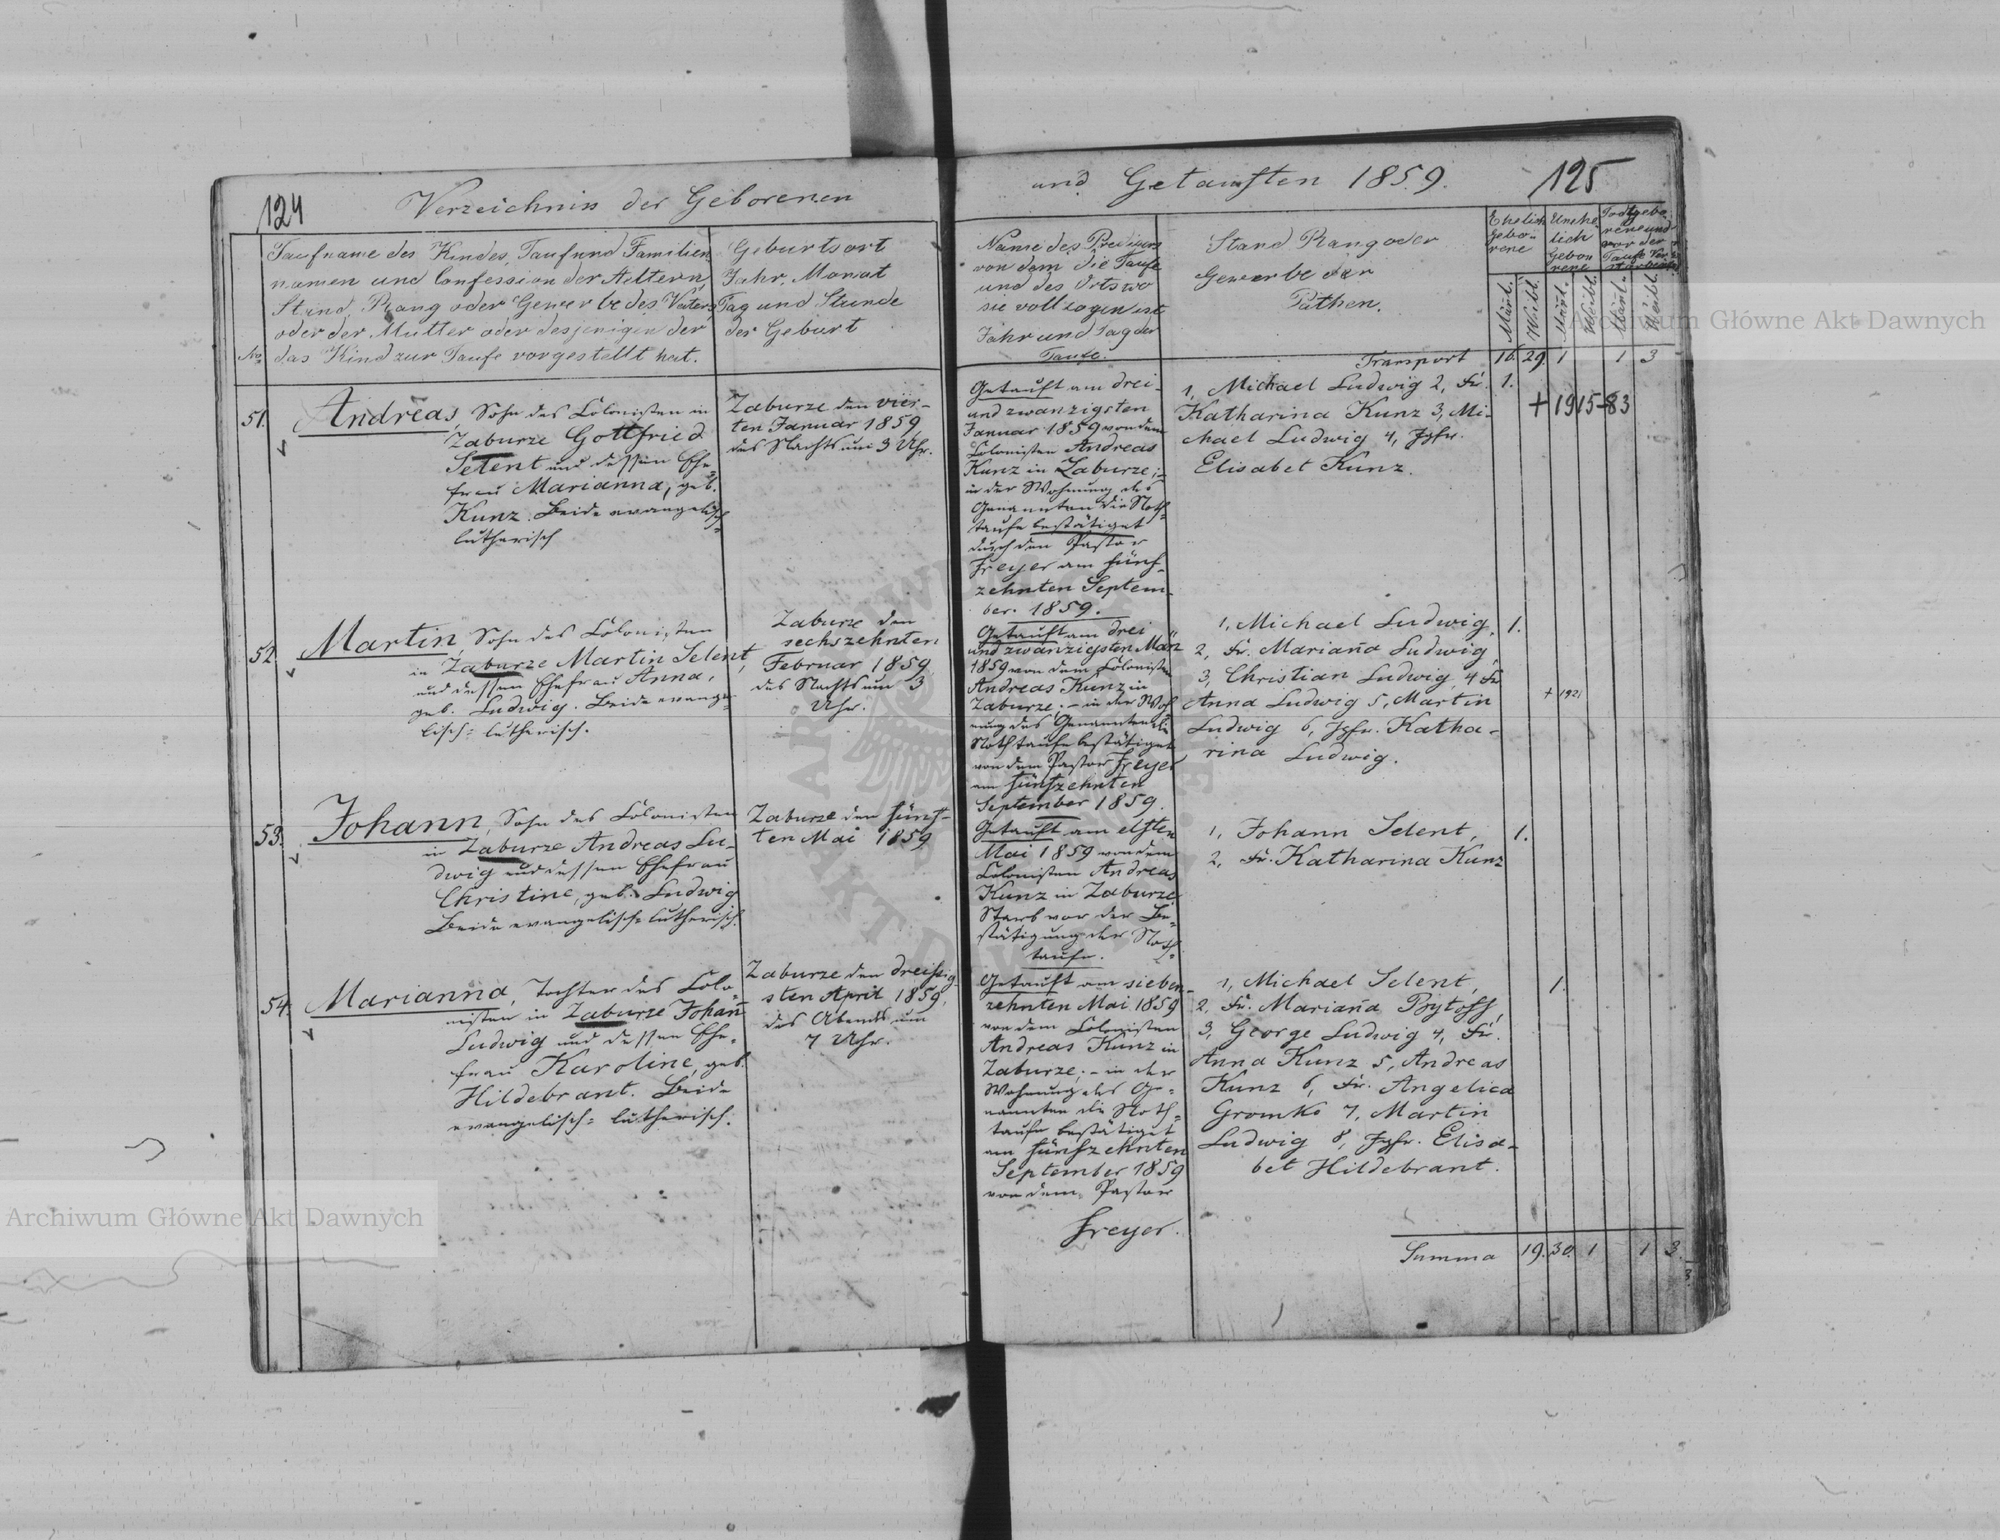 124
Verzeichniss der Geborenen
Taufname des Kindes, Tauf und Familien
namen und Confession der Aeltern,
Stand, Rang oder Gewerbe des Vaters
oder der Mutter oder desjenigen der
No das Kind zur Taufe vorgestellt hat.
Geburtsort
Jahr, Monat
Tag und Stunde
der Geburt
51. Andreas, Sohn des Colonisten in
Zaburze Gottfried
Selent und dessen Ehe-
frau Marianna, geb.
Kunz. Beide evangelisch-
lutherisch
Zaburze den vier-
ten Januar 1859
des Nachts um 3 Uhr.
52. Martin, Sohn des Colonisten
in Zaburze Martin Selent,
und dessen Ehefrau Anna,
geb. Ludwig. Beide evange-
lisch-lutherisch.
Zaburze den
sechszehnten
Februar 1859
des Nachts um 3
Uhr.
53. Johann, Sohn des Colonisten
in Zaburze Andreas Lu-
dwig und dessen Ehefrau
Christine, geb. Ludwig
Beide evangelisch-lutherisch.
Zaburze den fünf-
ten Mai 1859
54. Marianna, Tochter des Colo-
nisten in Zaburze Johan̄
Ludwig und dessen Ehe-
frau Karoline, geb.
Hildebrant. Beide
evangelisch-lutherisch.
Zaburze den dreissig-
sten April 1859,
des Abends um
7 Uhr.
und Getauften 1859.
125
Name des Predigers
von dem die Taufe
und des Orts wo
sie vollzogen ist
Jahr und Tag der
Taufe.
Stand Rang oder
Gewerbe der
Pathen.
Ehelich
Gebo-
rene
Unehe
lich
Gebo
rene
Todtgebo
rene und
vor der
Taufe Ver
storbene
Mänl. Weibl. Mänl. Weibl. Mänl. Weibl.
Transport 16. 29. 1 1 3
Getauft am drei-
und zwanzigsten
Januar 1859 von dem
Colonisten Andreas
Kunz in Zaburze;-
in der Wohnung des
Genannten die Noth-
taufe bestätiget
durch den Pastor
Freyer am fünf-
zehnten Septem-
ber. 1859.
1, Michael Ludwig 2, Fr. 1.
Katharina Kunz 3, Mi-
chael Ludwig 4, Jgfr.
Elisabet Kunz.
+ 1915-83
Getauft am drei
und zwanzigsten Mär
1859 von dem Colonisten
Andreas Kunz in
Zaburze;- in der Woh
nung des Genannten die
Nothtaufe bestätiget
von dem Pastor Freyer
am fünfzehnten
September 1859.
1, Michael Ludwig, 1.
2, Fr. Marian̄a Ludwig,
3, Christian Ludwig 4 Fr
Anna Ludwig 5, Martin
Ludwig 6, Jgfr. Katha-
rina Ludwig.
+ 1921
Getauft am elften
Mai 1859 von dem
Colonisten Andreas
Kunz in Zaburze
Starb vor der Be-
stätigung der Noth-
taufe.
1, Johann Selent, 1.
2, Fr. Katharina Kunz
Getauft am sieben-
zehnten Mai 1859
von dem Colonisten
Andreas Kunz in
Zaburze;- in der
Wohnung des Ge-
nannten die Noth-
taufe bestätigt
am fünfzehnten
September 1859
von dem Pastor
Freyer.
1, Michael Selent, 1.
2, Fr. Marian̄a Prytoff,
3, George Ludwig 4, Fr.
Anna Kunz 5, Andreas
Kunz 6, Fr. Angelica
Gromko 7, Martin
Ludwig 8, Jgfr. Elisa-
bet Hildebrant.
Summa 19. 30. 1 1 3.
Archiwum Główne Akt Dawnych
Archiwum Główne Akt Dawnych